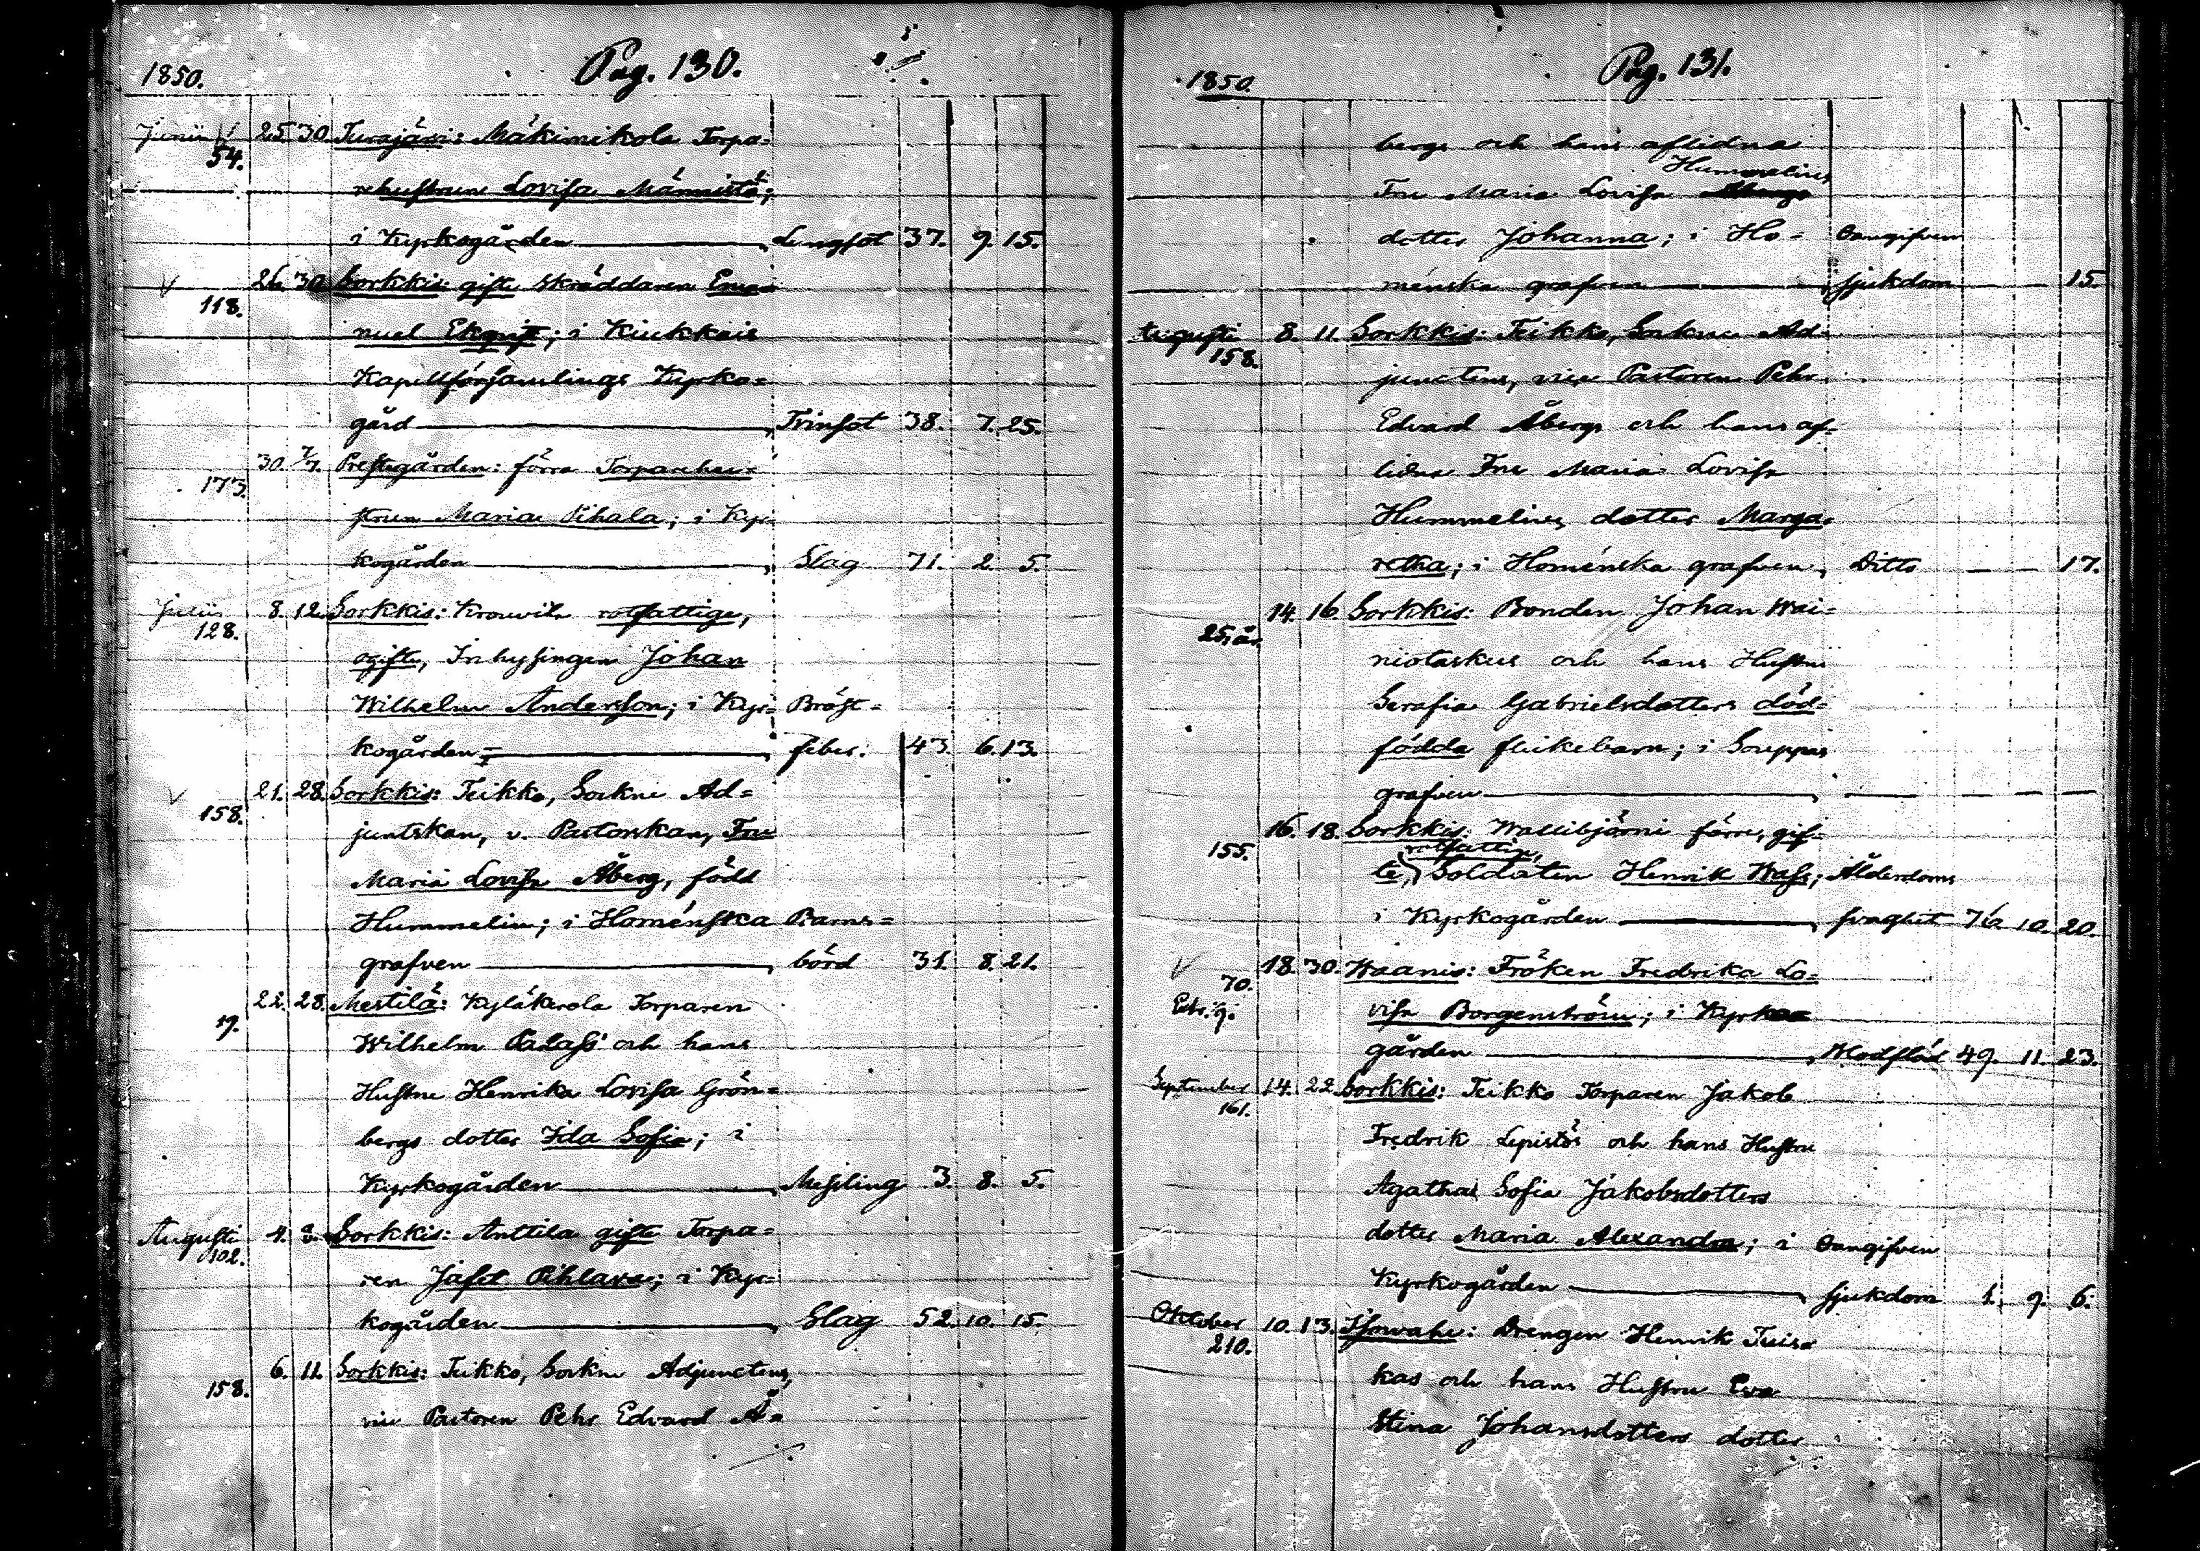 1850.
Pag. 130.
Junii 25. 30. Turajärvi: Mäkimikola Torpa=
54.
rehustrun Lovisa Männistä;
i Kyrkogården Lungsot 37. 9. 15.
26. 30. Sorkkis: gifte Skräddaren Ema=
118.
nuel Ekqvist; i Kiukkais
Kapellförsamlings Kyrko=
gård Tvinsot 38. 7. 25.
30. 7/7. Prestegården: förra Torparehu=
173.
strun Maria Pihala; i Kyr=
kogården Slag 71. 2. 5.
Julii 8. 12. Sorkkis: Krouvila rotfattige,
128.
ogifte, Inhysingen Johan
Wilhelm Andersson; i Kyr= Bröst=
kogården feber. 43. 6. 13.
21. 28. Sorkkis: Teikko, Sockne Ad=
158.
junctskan, v. Pastorskan, Fru
Maria Lovisa Åberg, född
Hummelin; i Homénska Barns=
grafven börd 31. 8. 21.
22. 28. Mestilä: Kyläkarola Torparen
19.
Wilhelm Palas' och hans
Hustru Henrika Lovisa Grön=
bergs dotter Ida Sofia; i
Kyrkogården Messling 3. 8. 5.
Augusti 4. 8. Sorkkis: Anttila gifte Torpa=
102.
ren Jafet Pihlava; i Kyr=
kogården Slag 52. 10. 15.
6. 11. Sorkkis: Teikko, Sockne Adjunctens,
158.
vice Pastoren Pehr Edvard Å=
1850.
Pag. 131.
bergs och hans aflidna
Hummelins
Fru Maria Lovisa
dotter Johanna; i Ho= Oangifven
ménska grafven sjukdom 15.
Augusti 8. 11. Sorkkis: Teikko, Sockne Ad=
158.
junctens, vice Pastoren Pehr
Edvard Åbergs och hans af=
lidna Fru Maria Lovisa
Hummelins dotter Marga=
retha; i Homénska grafven, Ditto 17.
14. 16. Sorkkis: Bonden Johan Wai=
25,
niotaskus och hans Hustru
Serafia Gabrielsdotters död=
födda flickebarn; i Souppas
grafven
16. 18. Sorkkis: Wallibjörni förre, gif=
155. rotfattig,
te, Soldaten Henrik Wass; Ålderdoms
i Kyrkogården svaghet 76. 10. 20.
18. 30. Waanis: Fröken Fredrika Lo=
70.
visa Borgenström; i Kyrko=
gården Blodflöd 49. 11. 23.
September 14. 22. Sorkkis: Teikko Torparen Jakob
161.
Fredrik Lepistös och hans Hustru
Agatha Sofia Jakobsdotters
dotter Maria Alexandra; i Oangifven
Kyrkogården sjukdom 1. 9. 6.
Oktober 10. 13. Isovahe: Drengen Henrik Tuis=
210.
kas och hans Hustru Eva
Stina Johansdotters dotter